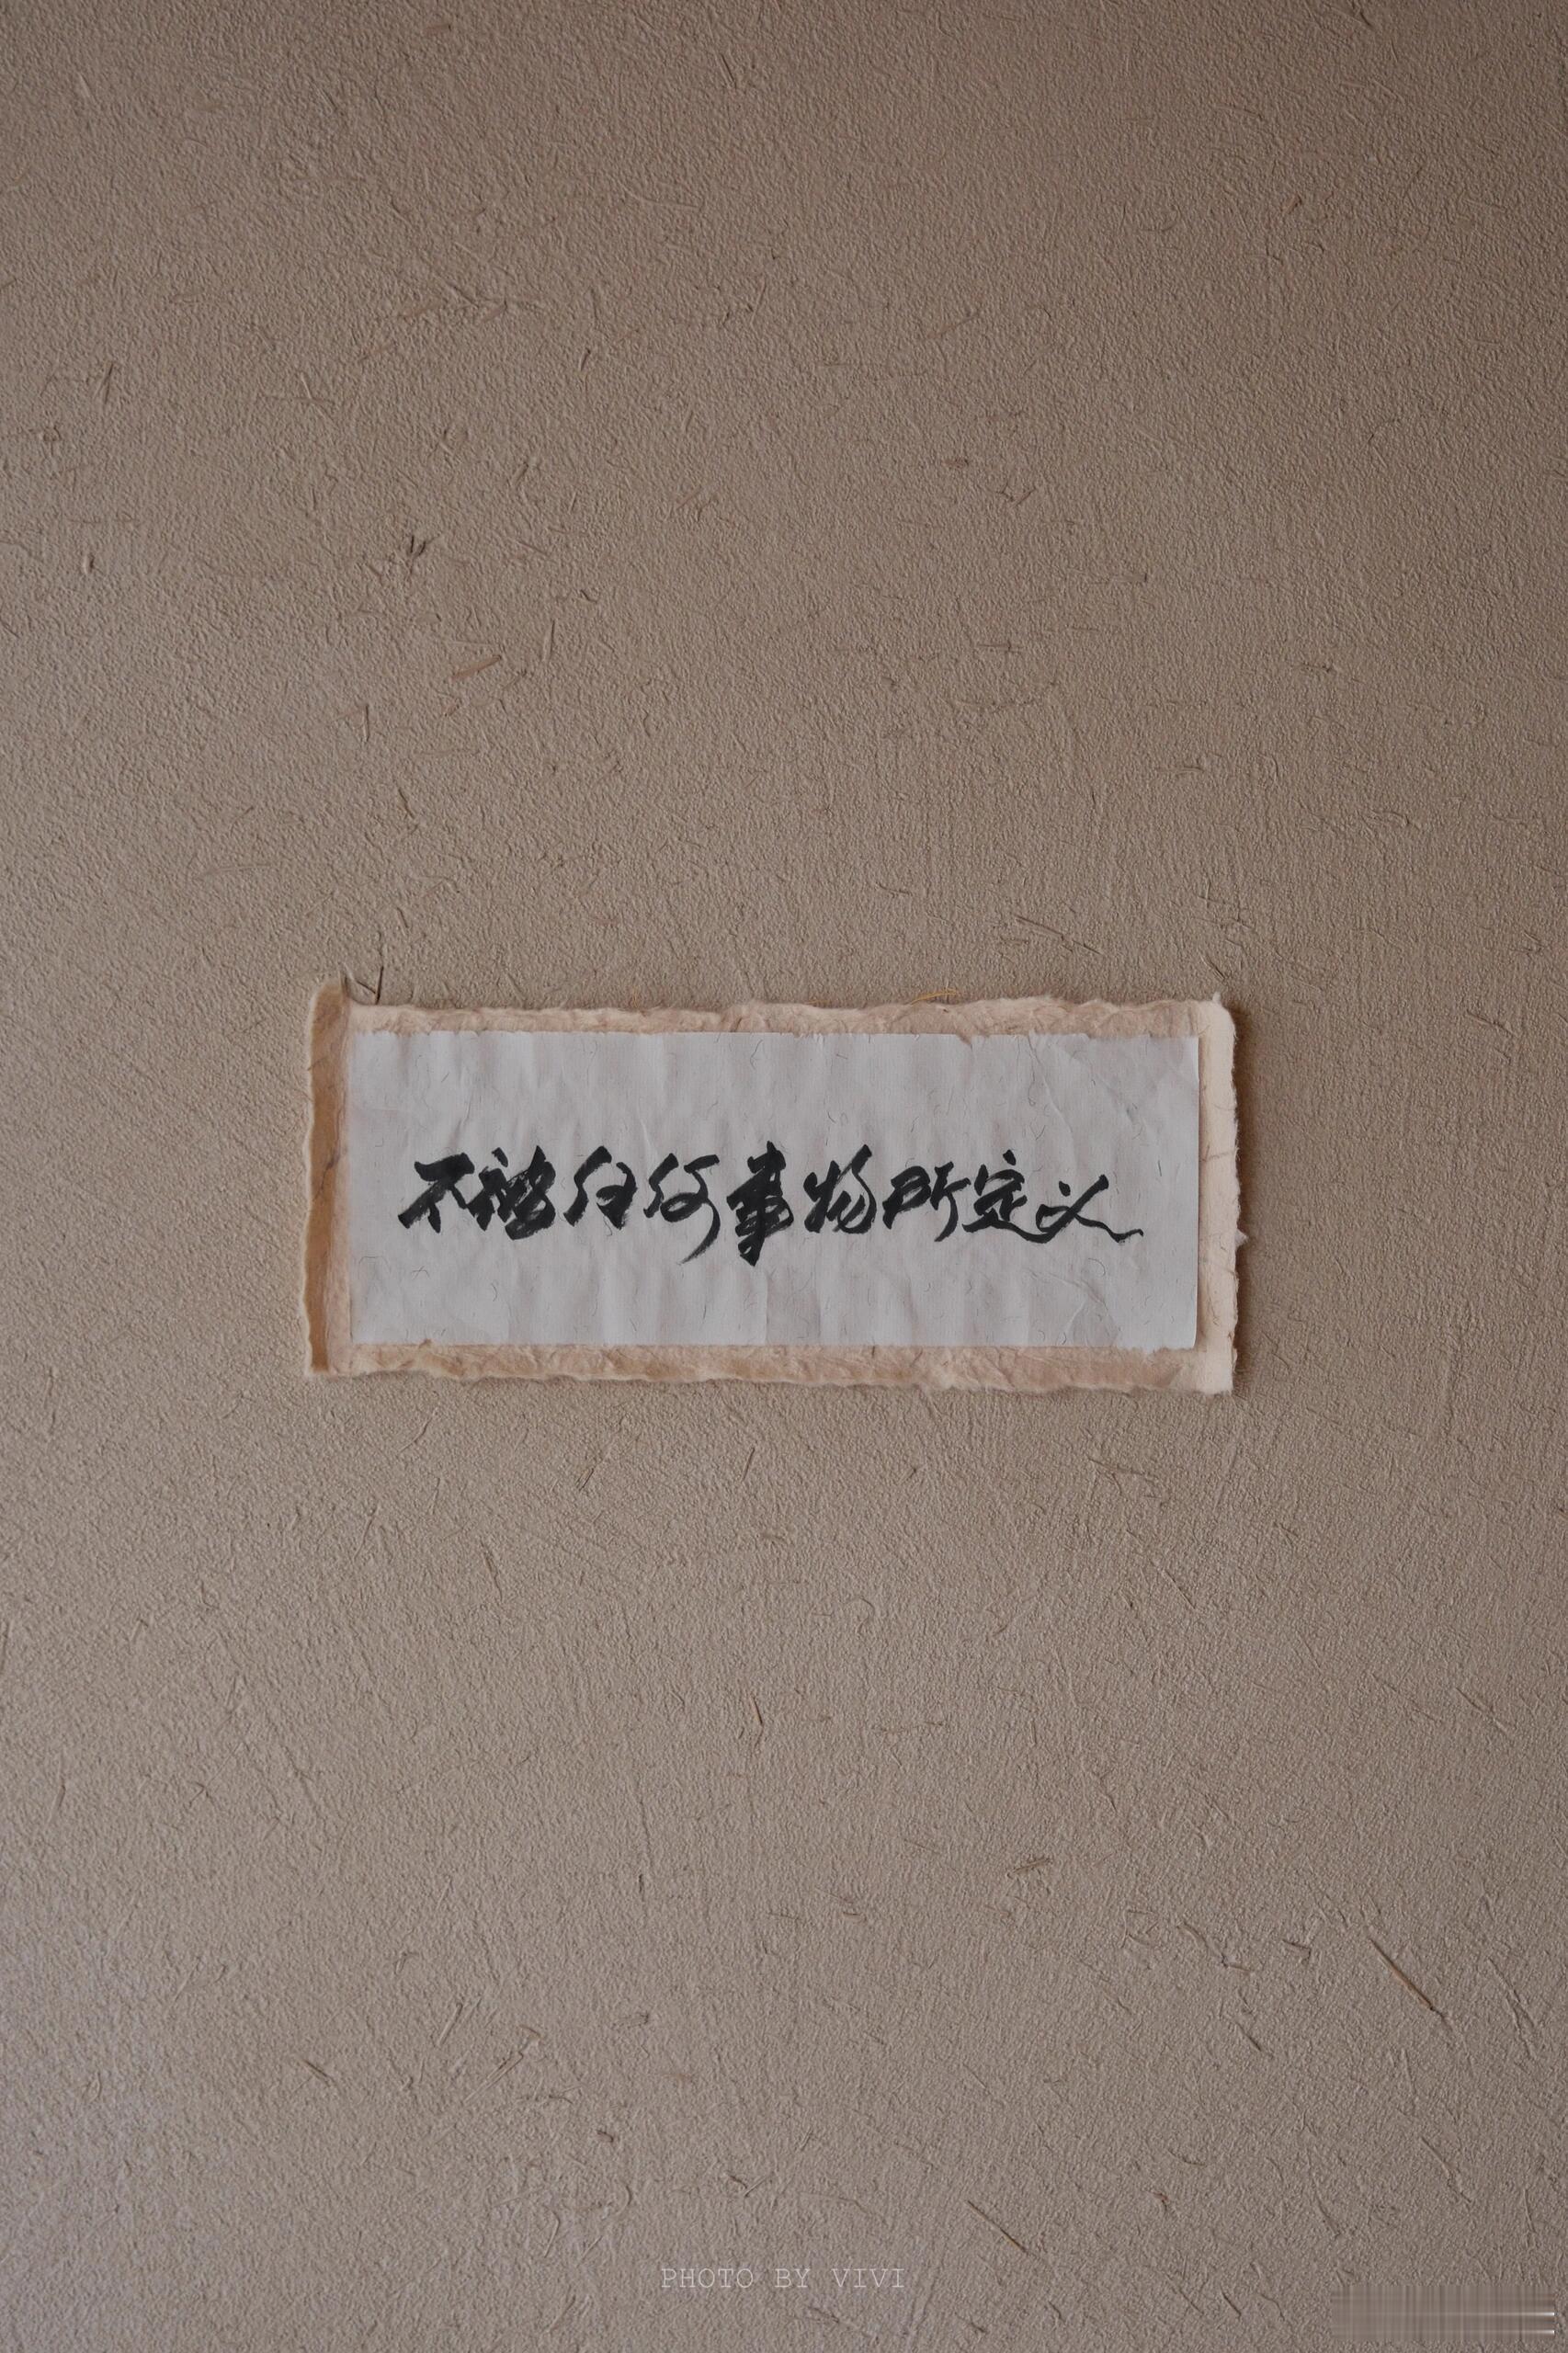 不被任何事物所定义
PHOTO BY VIVI